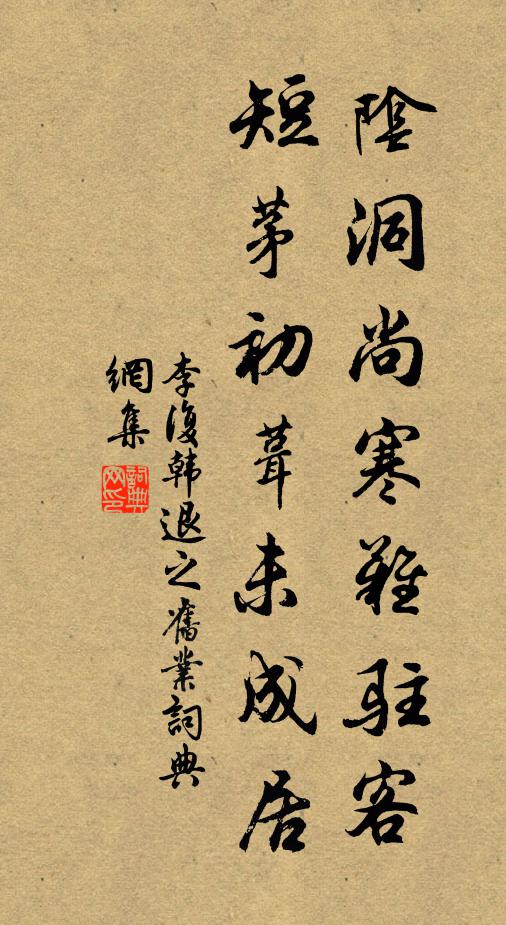 陰洞尚寒難駐客
短茅初葺未成居
李復韩退之舊業詞典
網集
詞典網印